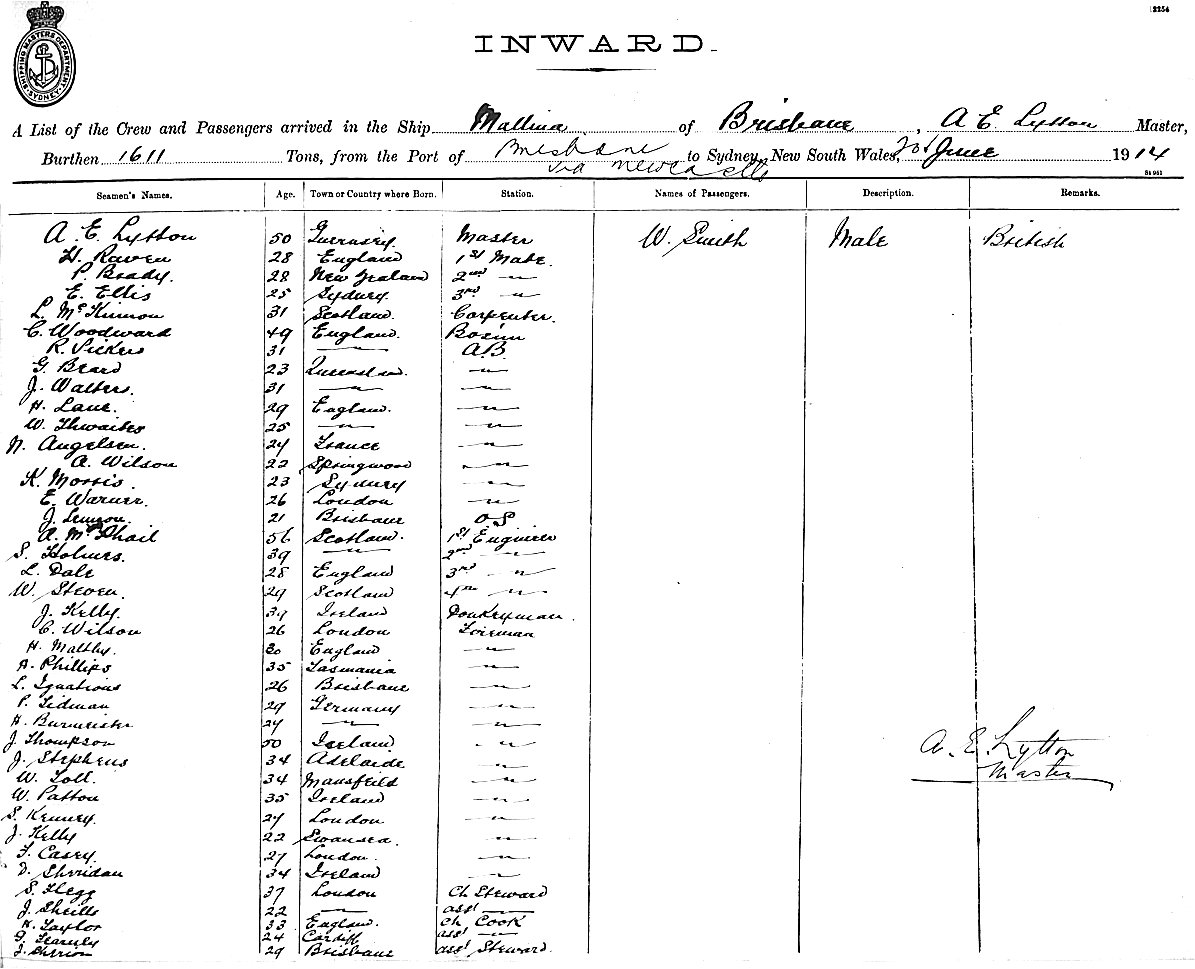 2254
SHIPPING MASTERS DEPARTMENT SYDNEY
INWARD.
A List of the Crew and Passengers arrived in the Ship Mallina of Brisbane, A E Lytton Master,
Burthen 1611 Tons, from the Port of Brisbane via Newcastle to Sydney, New South Wales, June 1914
Seamen's Names. Age. Town or Country where Born. Station. Names of Passengers. Description. Remarks.
A. E. Lytton 50 Guernsey Master W. Smith Male British
H. Raven 28 England 1st Mate
P. Brady. 28 New Zealand 2nd "
E. Ellis 25 Sydney 3rd "
L. McKinnon 31 Scotland. Carpenter.
C. Woodward 49 England. Bosun
R. Vickers 31 " AB
G. Beard 23 Queensland. "
J. Walters. 31 " "
H. Lane. 29 England. "
W. Thwaites 25 " "
N. Angelsen. 24 France "
A. Wilson 22 Springwood "
K. Morris. 23 Sydney "
E. Warner. 26 London "
J. 21 Brisbane OS
A. McPhail 56 Scotland. 1st Engineer
S. Holmes. 39 " 2nd "
L. Dale 28 England 3rd "
W. Steven. 24 Scotland 4th "
J. Kelly 39 Ireland Donkeyman.
C. Wilson 26 London Fireman
H. Maltby. 30 England "
A. Phillips 35 Tasmania "
L. Ignatious 26 Brisbane "
P. Tidman 29 Germany "
H. Burmeister 24 " "
J. Thompson 50 Ireland "
J. Stephens 34 Adelaide "
W. Toll. 34 Mansfeild "
W. Patton 35 Ireland "
S. Kenney. 24 London "
J. Kelly 22 Swansea. "
T. Casey. 27 London. "
D. Sheridan 34 Ireland "
S. Flegg 37 London Ch Steward
J. Sheills 22 " asst "
K. Taylor 33 England. Ch Cook
G. 24 Cardiff asst "
J. 29 Brisbane asst Steward.
A. E. Lytton
Master